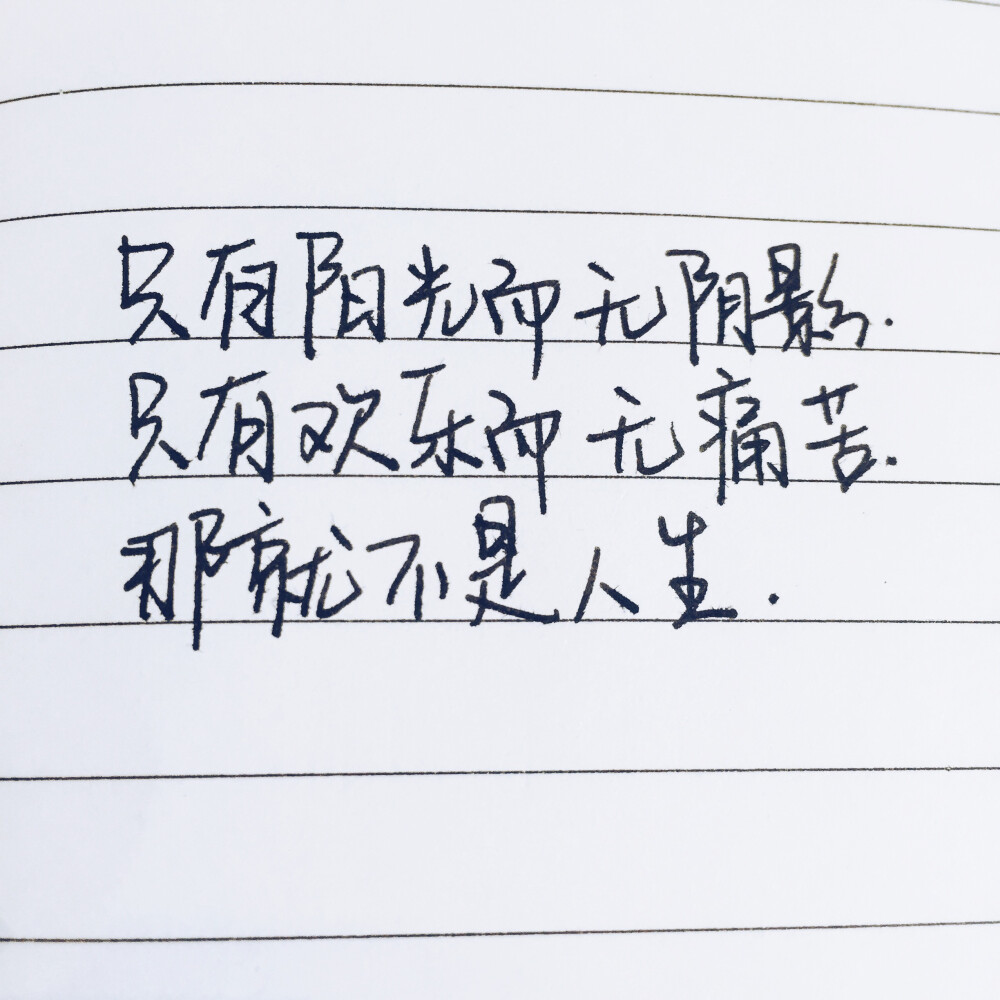 只有阳光而无阴影.
只有欢乐而无痛苦.
那就不是人生.